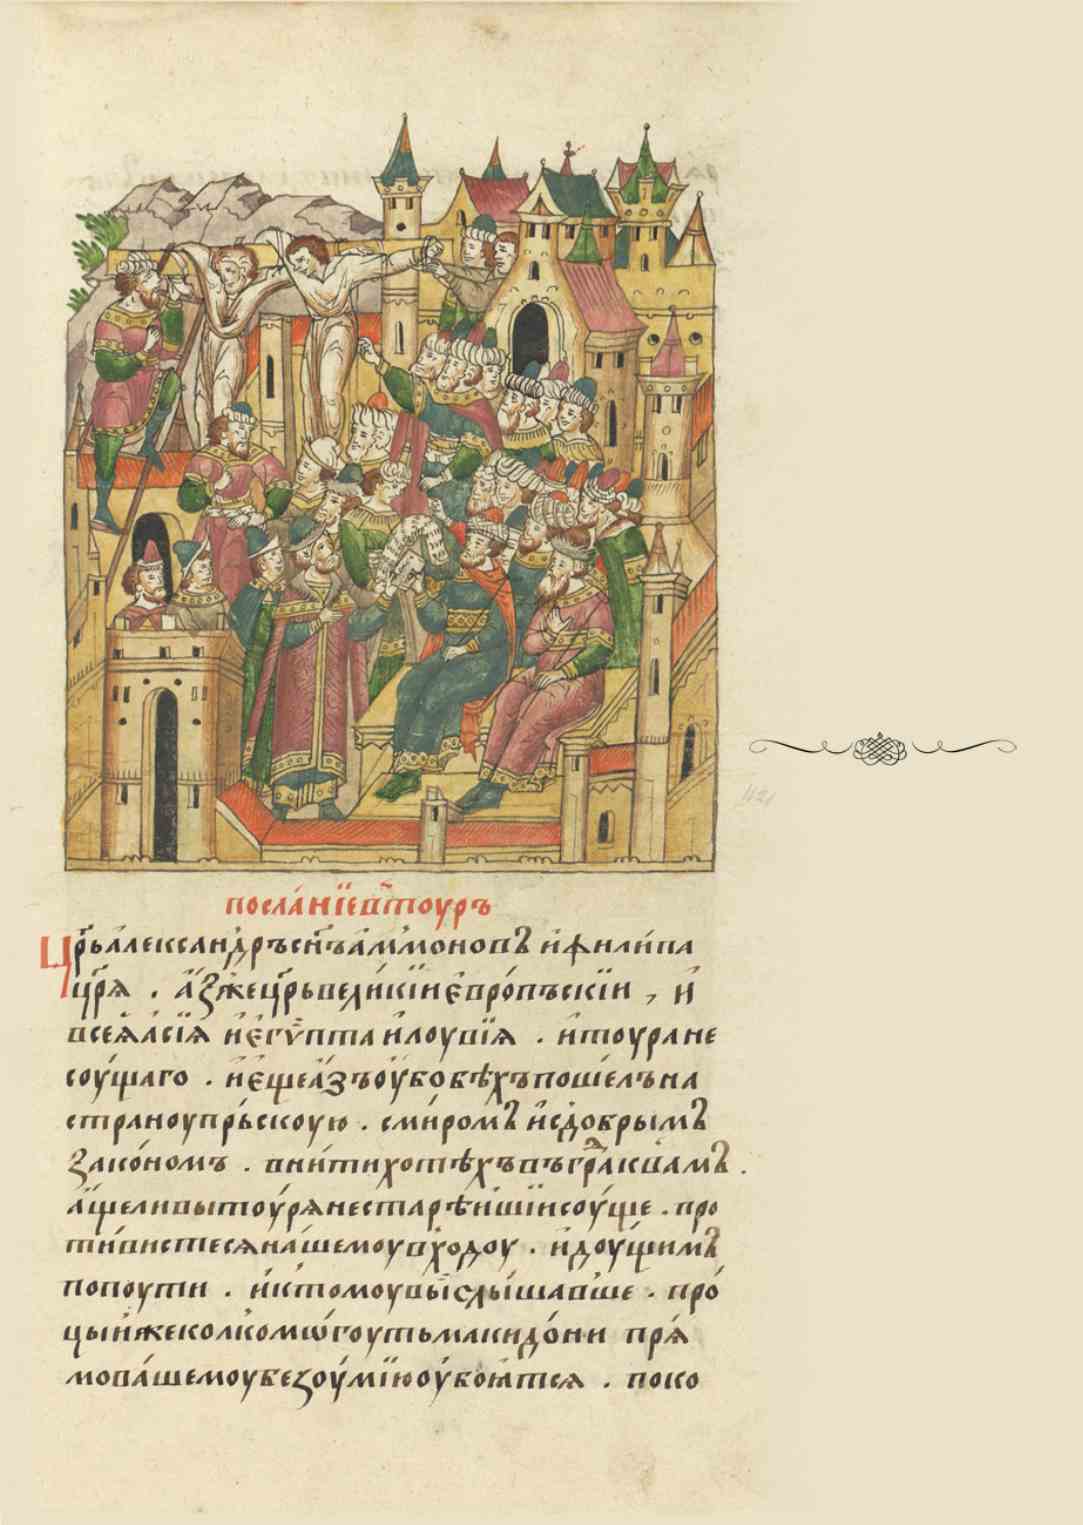 посла́нїе в̾ тоуръ
Цр҃ь а҆леѯандръ сн҃ъ а҆м̾моновъ и҆ фили́па
цр҃я . а҆́з же цр҃ь вели́кїи є҆вро́пъскїи , и҆
всеѧ̀ а҆сі́ѧ и҆ є҆гѵ́пта и҆ лоуві́ѧ . и҆ тоура не
соу́щаго . и҆ є҆ще а҆́зъ оу҆́бо бѣ́хъ поше́лъ на
страноу пр҃ьскоую . с ми́ромъ и҆ с до́брымъ
зако́номъ . вни́ти хотѣ́хъ въ гра́д к ва́мъ .
а҆́ще ли вы тоу́ряне старѣ́ишїи соу́ще . про
ти́вистеся на́шемоу вхо́доу . и҆доу́щимъ
по поути . и҆ к томоу вы̀ слы́шавше . про́
цыи҆ же колко мо́гоуть макидо́ни пря́
мо ва́шемоу безоу́мїю оу҆боя́тся . поко